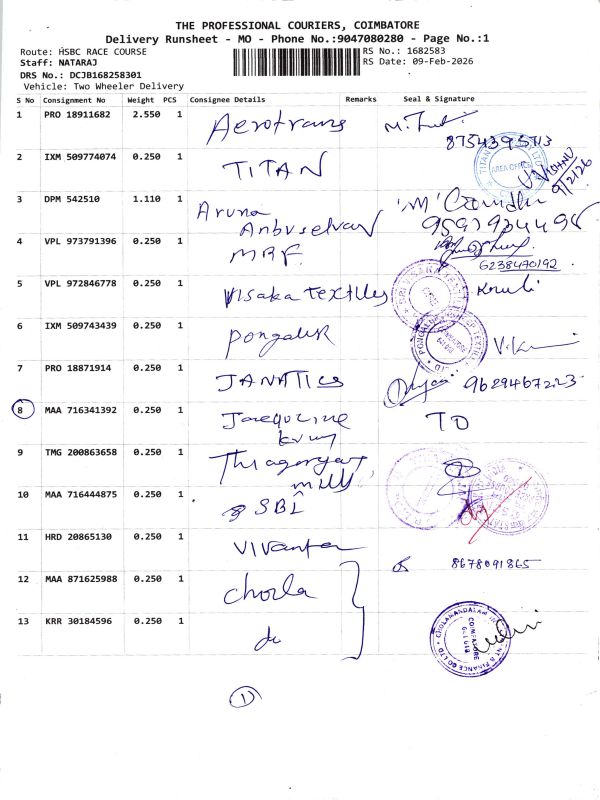 THE PROFESSIONAL COURIERS, COIMBATORE
Delivery Runsheet - MO - Phone No.:9047080280 - Page No.:1
Route: HSBC RACE COURSE
RS No.: 1682583
Staff: NATARAJ
RS Date: 09-Feb-2026
DRS No.: DCJB168258301
Vehicle: Two Wheeler Delivery
S No Consignment No Weight PCS Consignee Details Remarks Seal & Signature
1 PRO 18911682 2.550 1 Aerotrans
8754395713
2 IXM 509774074 0.250 1 TITAN
AREA OFFICE
9/2/26
3 DPM 542510 1.110 1 Aruna
Anbuselvan
4 VPL 973791396 0.250 1 MRF
6238470192
5 VPL 972846778 0.250 1 Visaka textiles
6 IXM 509743439 0.250 1 Pongalur
7 PRO 18871914 0.250 1 JANATICS 9629467223
8 MAA 716341392 0.250 1 TD
9 TMG 200863658 0.250 1 Thiagarajar
mills
10 MAA 716444875 0.250 1 SBI
11 HRD 20865130 0.250 1 Vivanta
8678091865
12 MAA 871625988 0.250 1 Chola
13 KRR 30184596 0.250 1 do
COIMBATORE
1